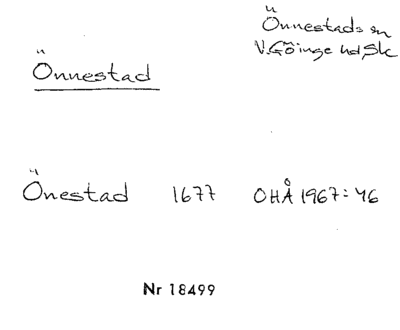 Önnestads sn
V. Göinge hd Sk
Önnestad
Önestad 1677 OHÅ 1967:46
Nr 18499